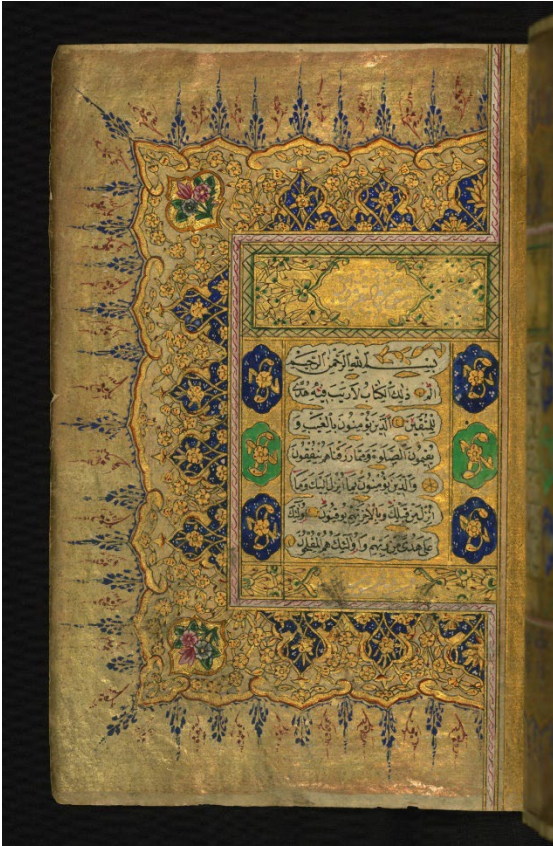 بسم الله الرحمن الرحيم
الم ذلك الكتاب لا ريب فيه هدى
للمتقين الذين يؤمنون بالغيب و
يقيمون الصلوة ومما رزقناهم ينفقون
والذين يؤمنون بما انزل اليك وما
انزل من قبلك وبالاخرة هم يوقنون اولئك
على هدى من ربهم واولئك هم المفلحون